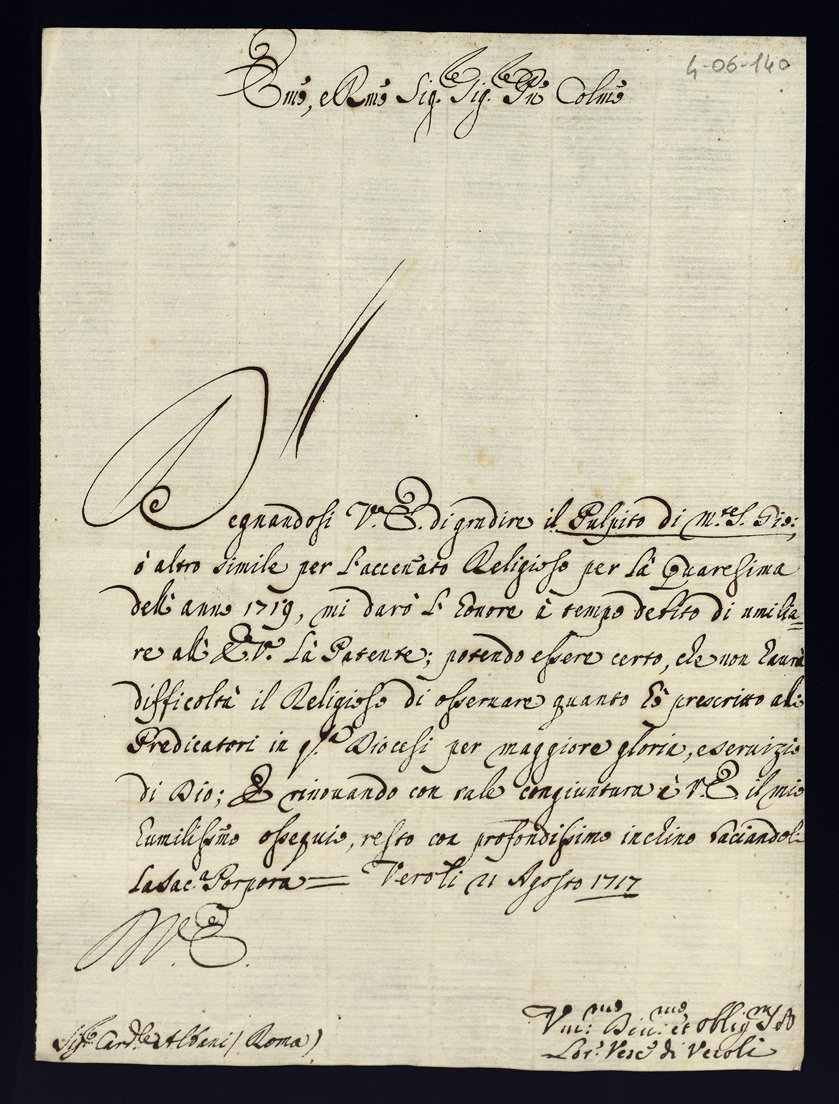 4-06-140
Emo, e Rmo Sig.r Sig.r Pne Colmo
Degnandosi V.ra E. di gradire il Pulpito di m.te S. Gio:
ò altro simile per l'accenato Religioso per la Quaresima
dell'anno 1719, mi darò l'honore à tempo debito di umilia=
re all'E.V.ra la Patente; potendo essere certo, che non haurà
difficoltà il Religioso di osseruare quanto hò prescritto alli
Predicatori in q.sta Diocesi per maggiore gloria, e seruizio
di Dio; E rinouando con tale congiuntura à V.E. il mio
humilissmo ossequio, resto con profondissimo inchino baciandoli
la Sac.a Porpora = Veroli 21 Agosto 1717
V.E.
Sig.r Card.le Albani (Roma)
Vm.mo Diu.mo et oblig.mo
Lor.o Vesc.o di Veroli